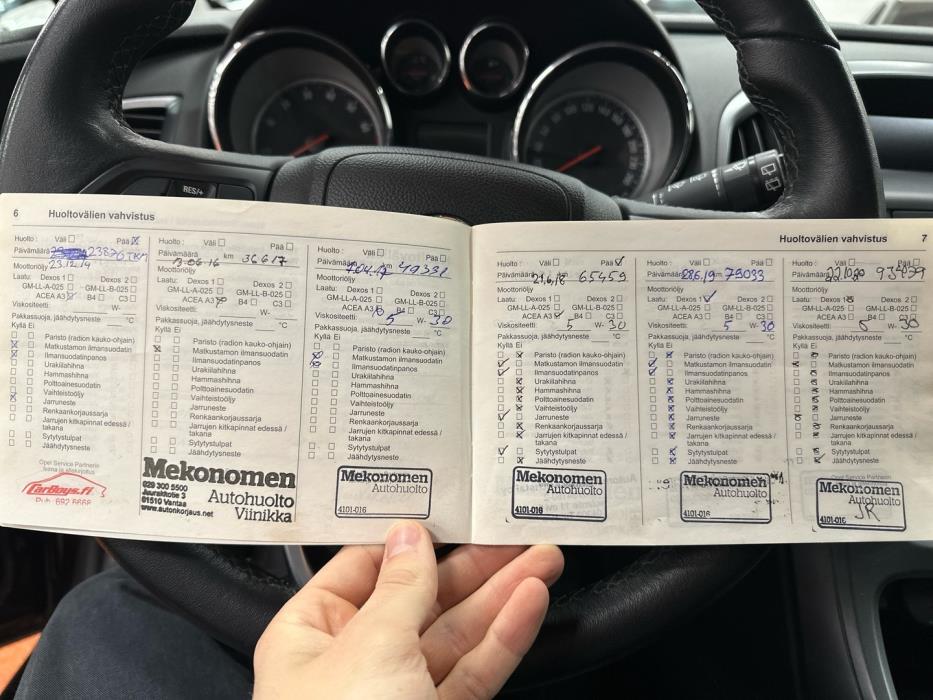 RES/+
6 Huoltovälien vahvistus
Huolto : Väli Pää X
Päivämäärä 23876 TKM
23.12.14
Moottoriöljy
Laatu: Dexos 1 Dexos 2
GM-LL-A-025 GM-LL-B-025
ACEA A3 B4 C3
Viskositeetti: W-
Pakkassuoja, jäähdytysneste °C
Kyllä Ei
Paristo (radion kauko-ohjain)
Matkustamon ilmansuodatin
Ilmansuodatinpanos
Urakiilahihna
Hammashihna
Polttoainesuodatin
Vaihteistoöljy
Jarruneste
Renkaankorjaussarja
Jarrujen kitkapinnat edessä /
takana
Sytytystulpat
Jäähdytysneste
Opel Service Partnerin
leima ja allekirjoitus
CarBoys.fi
Huolto : Väli Pää
Päivämäärä 13.06.16 km 36617
Moottoriöljy
Laatu: Dexos 1 Dexos 2
GM-LL-A-025 GM-LL-B-025
ACEA A3 B4 C3
Viskositeetti: W-
Pakkassuoja, jäähdytysneste °C
Kyllä Ei
Paristo (radion kauko-ohjain)
Matkustamon ilmansuodatin
Ilmansuodatinpanos
Urakiilahihna
Hammashihna
Polttoainesuodatin
Vaihteistoöljy
Jarruneste
Renkaankorjaussarja
Jarrujen kitkapinnat edessä /
takana
Sytytystulpat
Jäähdytysneste
Mekonomen
029 300 5500
Juurakkotie 3
01510 Vantaa
www.autonkorjaus.net
Autohuolto
Viinikka
Huolto : Väli Pää
Päivämäärä
Moottoriöljy
Laatu: Dexos 1 Dexos 2
GM-LL-A-025 GM-LL-B-025
ACEA A3 B4 C3
Viskositeetti: 5 W- 30
Pakkassuoja, jäähdytysneste °C
Kyllä Ei
Paristo (radion kauko-ohjain)
Matkustamon ilmansuodatin
Ilmansuodatinpanos
Urakiilahihna
Hammashihna
Polttoainesuodatin
Vaihteistoöljy
Jarruneste
Renkaankorjaussarja
Jarrujen kitkapinnat edessä /
takana
Sytytystulpat
Jäähdytysneste
Mekonomen
Autohuolto
4101-016
Huoltovälien vahvistus 7
Huolto : Väli Pää
Päivämäärä 21.6.18 65459
Moottoriöljy
Laatu: Dexos 1 Dexos 2
GM-LL-A-025 GM-LL-B-025
ACEA A3 B4 C3
Viskositeetti: 5 W- 30
Pakkassuoja, jäähdytysneste °C
Kyllä Ei
Paristo (radion kauko-ohjain)
Matkustamon ilmansuodatin
Ilmansuodatinpanos
Urakiilahihna
Hammashihna
Polttoainesuodatin
Vaihteistoöljy
Jarruneste
Renkaankorjaussarja
Jarrujen kitkapinnat edessä /
takana
Sytytystulpat
Jäähdytysneste
Mekonomen
Autohuolto
4101-016
Huolto : Väli Pää
Päivämäärä 28.6.19 - 79033
Moottoriöljy
Laatu: Dexos 1 Dexos 2
GM-LL-A-025 GM-LL-B-025
ACEA A3 B4 C3
Viskositeetti: 5 W- 30
Pakkassuoja, jäähdytysneste °C
Kyllä Ei
Paristo (radion kauko-ohjain)
Matkustamon ilmansuodatin
Ilmansuodatinpanos
Urakiilahihna
Hammashihna
Polttoainesuodatin
Vaihteistoöljy
Jarruneste
Renkaankorjaussarja
Jarrujen kitkapinnat edessä /
takana
Sytytystulpat
Jäähdytysneste
Mekonomen
Autohuolto
4101-016
Huolto : Väli Pää
Päivämäärä
Moottoriöljy
Laatu: Dexos 1 Dexos 2
GM-LL-A-025 GM-LL-B-025
ACEA A3 B4 C3
Viskositeetti: W- 30
Pakkassuoja, jäähdytysneste °C
Kyllä Ei
Paristo (radion kauko-ohjain)
Matkustamon ilmansuodatin
Ilmansuodatinpanos
Urakiilahihna
Hammashihna
Polttoainesuodatin
Vaihteistoöljy
Jarruneste
Renkaankorjaussarja
Jarrujen kitkapinnat edessä /
takana
Sytytystulpat
Jäähdytysneste
Opel Service Partnerin
Mekonomen
Autohuolto
4101-016
JR